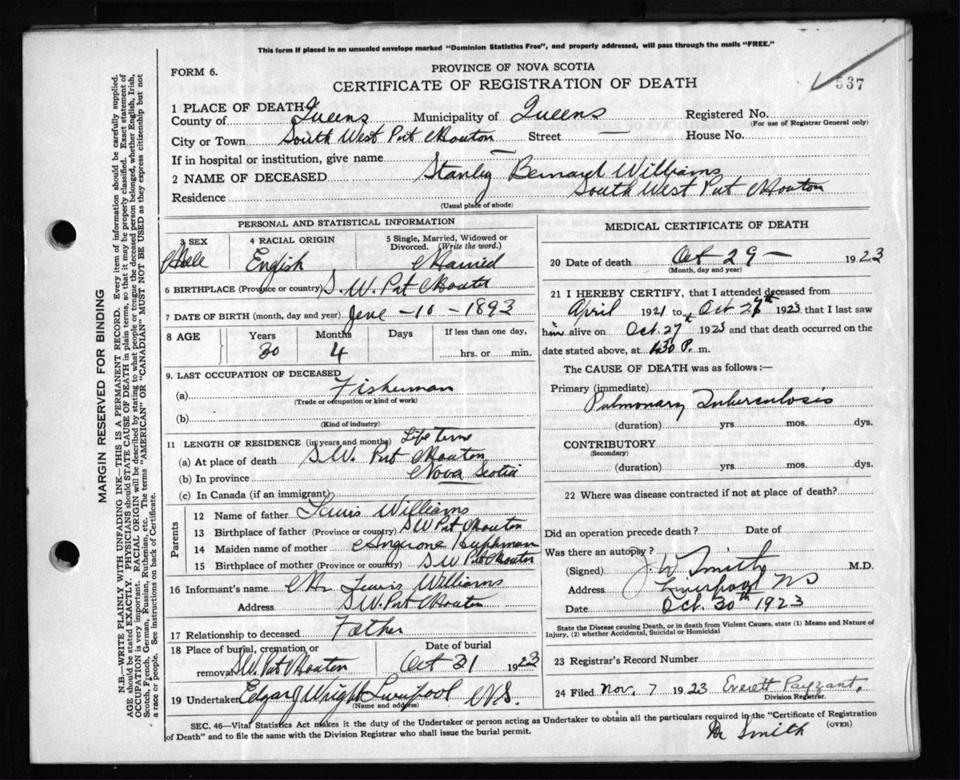 This form if placed in an unsealed envelope marked "Dominion Statistics Free", and properly addressed, will pass through the mails "FREE."
FORM 6.
PROVINCE OF NOVA SCOTIA
CERTIFICATE OF REGISTRATION OF DEATH
537
1 PLACE OF DEATH
County of Queens Municipality of Queens Registered No.
(For use of Registrar General only)
City or Town South West Port Mouton Street — House No.
If in hospital or institution, give name —
2 NAME OF DECEASED Stanley Bernard Williams
Residence South West Port Mouton
(Usual place of abode)
PERSONAL AND STATISTICAL INFORMATION
3 SEX 4 RACIAL ORIGIN 5 Single, Married, Widowed or Divorced. (Write the word.)
Male English Married
6 BIRTHPLACE (Province or country) S.W. Port Mouton
7 DATE OF BIRTH (month, day and year) June -10-1893
8 AGE Years Months Days If less than one day,
30 4 hrs. or min.
9. LAST OCCUPATION OF DECEASED
(a) Fisherman
(Trade or occupation or kind of work)
(b)
(Kind of industry)
11 LENGTH OF RESIDENCE (in years and months) Life Time
(a) At place of death S.W. Port Mouton
(b) In province Nova Scotia
(c) In Canada (if an immigrant)
Parents
12 Name of father Lewis Williams
13 Birthplace of father (Province or country) S W Port Mouton
14 Maiden name of mother
15 Birthplace of mother (Province or country) S W Port Mouton
16 Informant's name Mr Lewis Williams
Address S W. Port Mouton
17 Relationship to deceased Father
18 Place of burial, cremation or removal S.W. Port Mouton Date of burial Oct 31 1923
19 Undertaker Edgar J Wright Liverpool N.S.
(Name and address)
MEDICAL CERTIFICATE OF DEATH
20 Date of death Oct 29 — 1923
(Month, day and year)
21 I HEREBY CERTIFY, that I attended deceased from
April 1921 to Oct 1923 that I last saw
him alive on Oct. 27 1923 and that death occurred on
date stated above, at P. m.
The CAUSE OF DEATH was as follows:—
Primary (immediate)
Pulmonary Tuberculosis
(duration) yrs. mos. dys.
CONTRIBUTORY
(Secondary)
(duration) yrs. mos. dys.
22 Where was disease contracted if not at place of death?
Did an operation precede death? Date of
Was there an autopsy?
(Signed) J. W Smith M.D.
Address Liverpool N S
Date Oct. 30th 1923
State the Disease causing Death, or in death from Violent Causes, state (1) Means and Nature of
Injury, (2) whether Accidental, Suicidal or Homicidal
23 Registrar's Record Number
24 Filed Nov. 7 1923 Everett Payzant,
Division Registrar.
SEC. 46—Vital Statistics Act makes it the duty of the Undertaker or person acting as Undertaker to obtain all the particulars required in the "Certificate of Registration
of Death" and to file the same with the Division Registrar who shall issue the burial permit.
(OVER)
Dr Smith
MARGIN RESERVED FOR BINDING
N.B.—WRITE PLAINLY WITH UNFADING INK—THIS IS A PERMANENT RECORD. Every item of information should be carefully supplied.
AGE should be stated EXACTLY. PHYSICIANS should STATE CAUSE OF DEATH in plain terms, so that it may be properly classified. Exact statement of
OCCUPATION is very important. RACIAL ORIGIN will be described by stating to what people or tongue the deceased person belonged, whether English, Irish,
Scotch, French, German, Russian, Ruthenian, etc. The terms "AMERICAN" OR "CANADIAN" MUST NOT BE USED as they express citizenship but not
a race or people. See instructions on back of Certificate.